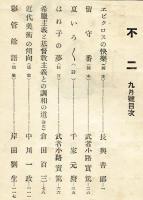 不二 九月號目次
エピクロスの快樂(脚本) 長與善郎 一
留守番(脚本) 武者小路實篤
夏いろ〱(詩) 千家元麿
はね子の夢 武者小路實篤
希臘主義と基督教主義との調和の道 倉田百三
近代美術の傾向 中川一政
彩管餘語 岸田劉生